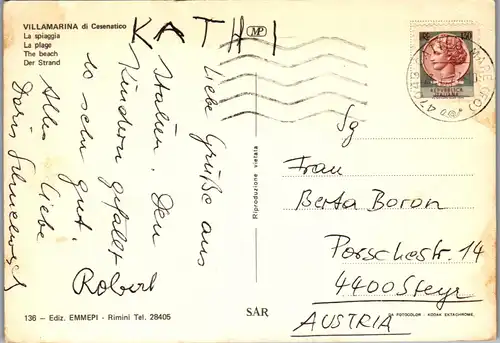 VILLAMARINA di Cesenatico
La spiaggia
La plage
The beach
Der Strand
KATHI
MP
Liebe Grüße aus
Italien. Den
Kindern gefällt
es sehr gut.
Alles Liebe
Doris
Robert
136 – Ediz. EMMEPI - Rimini Tel. 28405
Riproduzione vietata
SAR
150
Sg
Frau
Berta Boron
Porschestr. 14
4400 Steyr
AUSTRIA
FOTOCOLOR - KODAK EKTACHROME